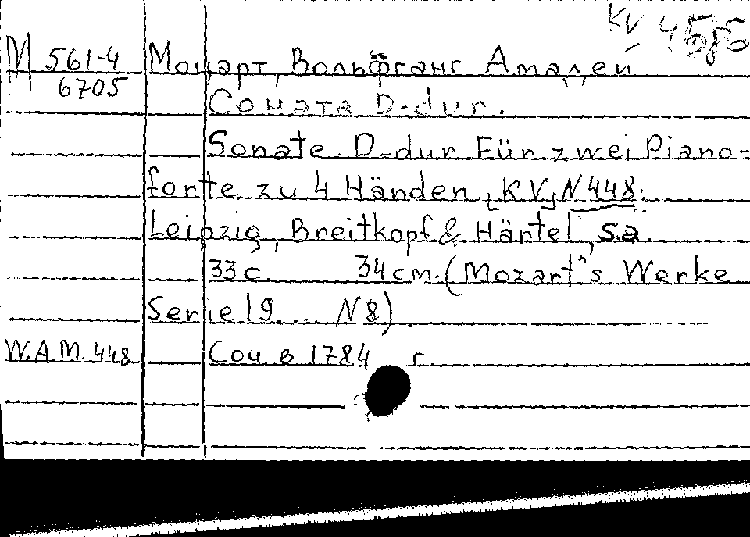 KV
M 561-4 Моцарт, Вольфганг Амадей
6705 Соната D-dur.
Sonate D-dur Für zwei Piano-
forte zu 4 Händen, KV, N 448.
Leipzig, Breitkopf & Härtel, s.a.
33 с 34 cm. (Mozart's Werke
Serie 19 ... N 8)
W.A.M. 448 Соч в 1784 г.